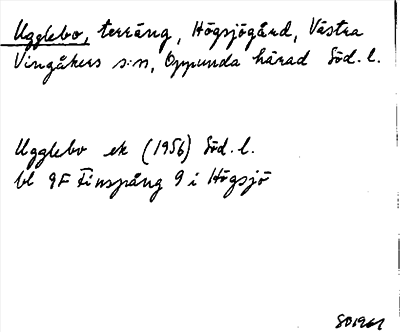 Ugglebo, terräng, Högsjögård, Västra
Vingåkers s:n, Oppunda härad Söd. l.
Ugglebo ek (1956) Söd. l.
bl 9F Finspång 9 i Högsjö
SO1961